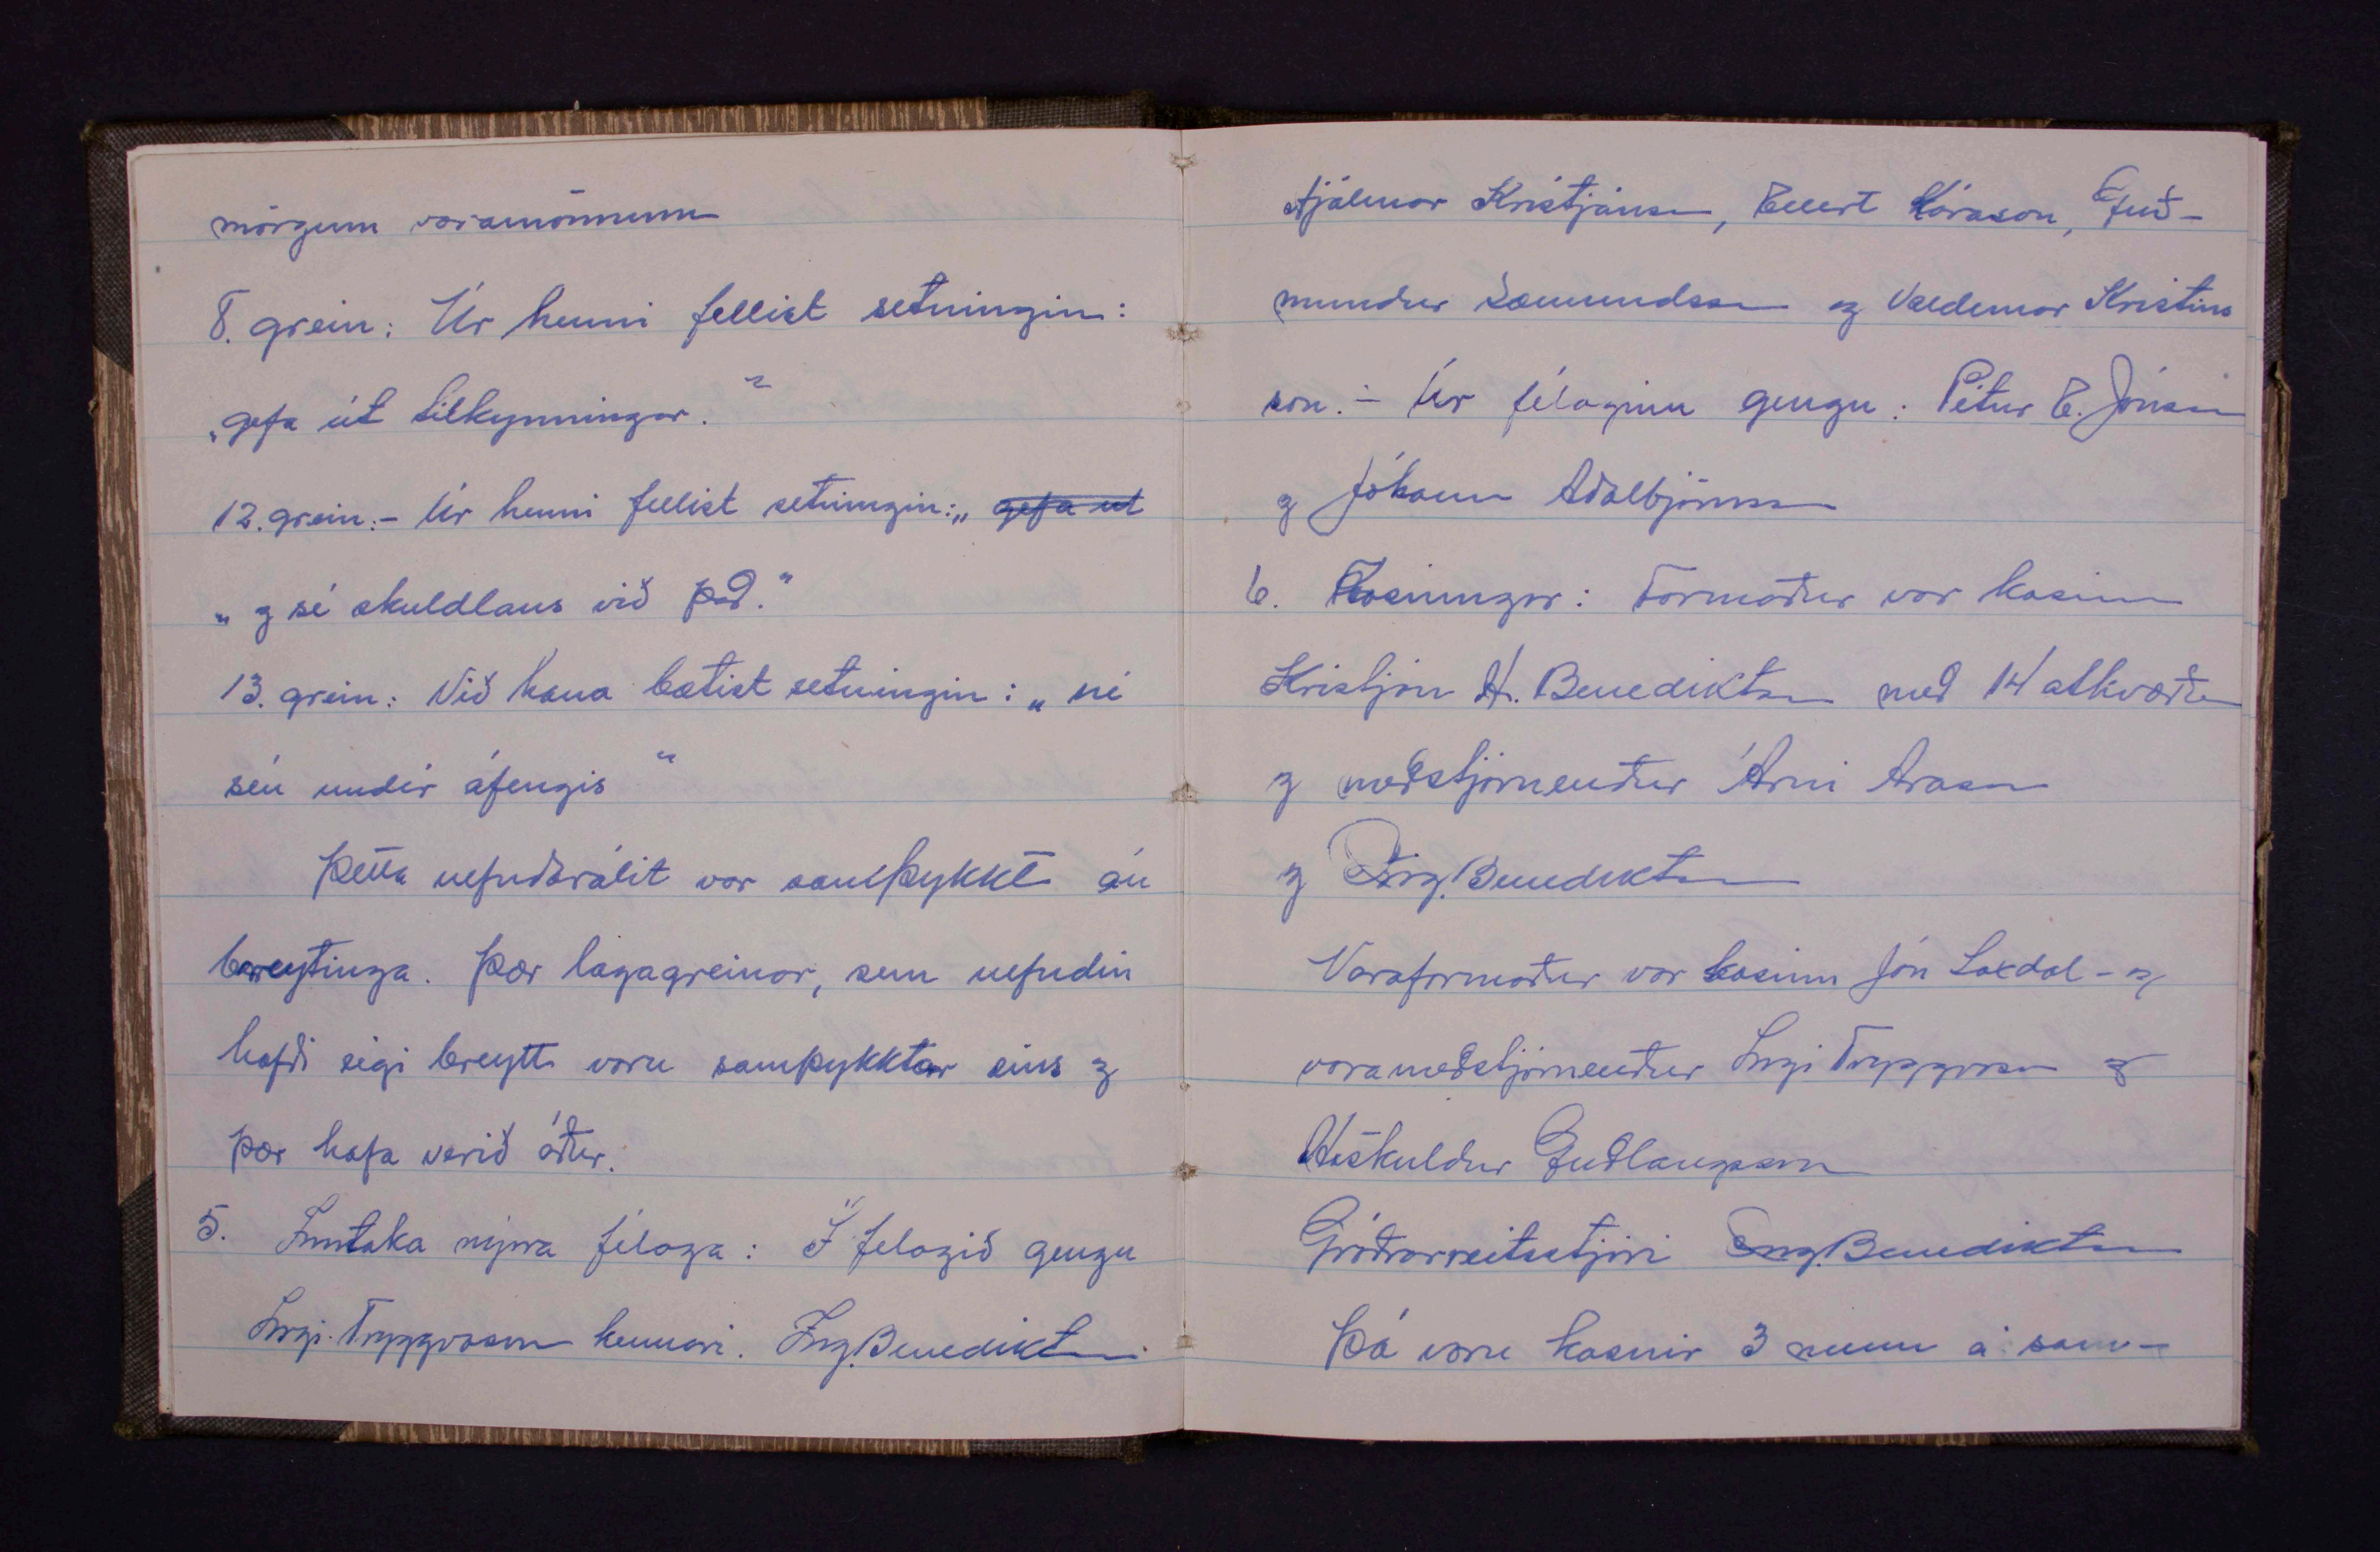 mörgum varamönnum
8. grein: Úr henni fellist setningin:
„gefa út tilkynningar.“
12. grein:- Úr henni fellist setningin: „ gefa út
„ og sé skuldlaus við það.“
13. grein: Við hana bætist setningin: „ né
séu undir áfengis “
Þetta nefndarálit var samþykkt án
breytinga. Þær lagagreinar, sem nefndin
hafði eigi breytt voru samþykktar eins og
þær hafa verið áður.
5. Inntaka nýrra félaga: Í felagið gengu
Ingi Tryggvason kennari. Ing. Benediktsson
Hjálmar Kristjánsson, Ellert Kárason, Guð-
mundur Sæmundsson og Valdemar Kristins
son. - Úr félaginu gengu: Pétur E. Jónsson
og Jóhann Aðalbjörnsson
6. Kosningar: Formaður var kosinn
Kristján H. Benediktsson með 14 atkvæðum
og meðstjórnendur Árni Arason
og Ing. Benediktsson
Varaformaður var kosinn Jón Laxdal - og
varameðstjórnendur Ingi Tryggvason og
Höskuldur Guðlaugsson
Gróðrarreitsstjóri Ing. Benediktsson
Þá voru kosnir 3 menn á sam-